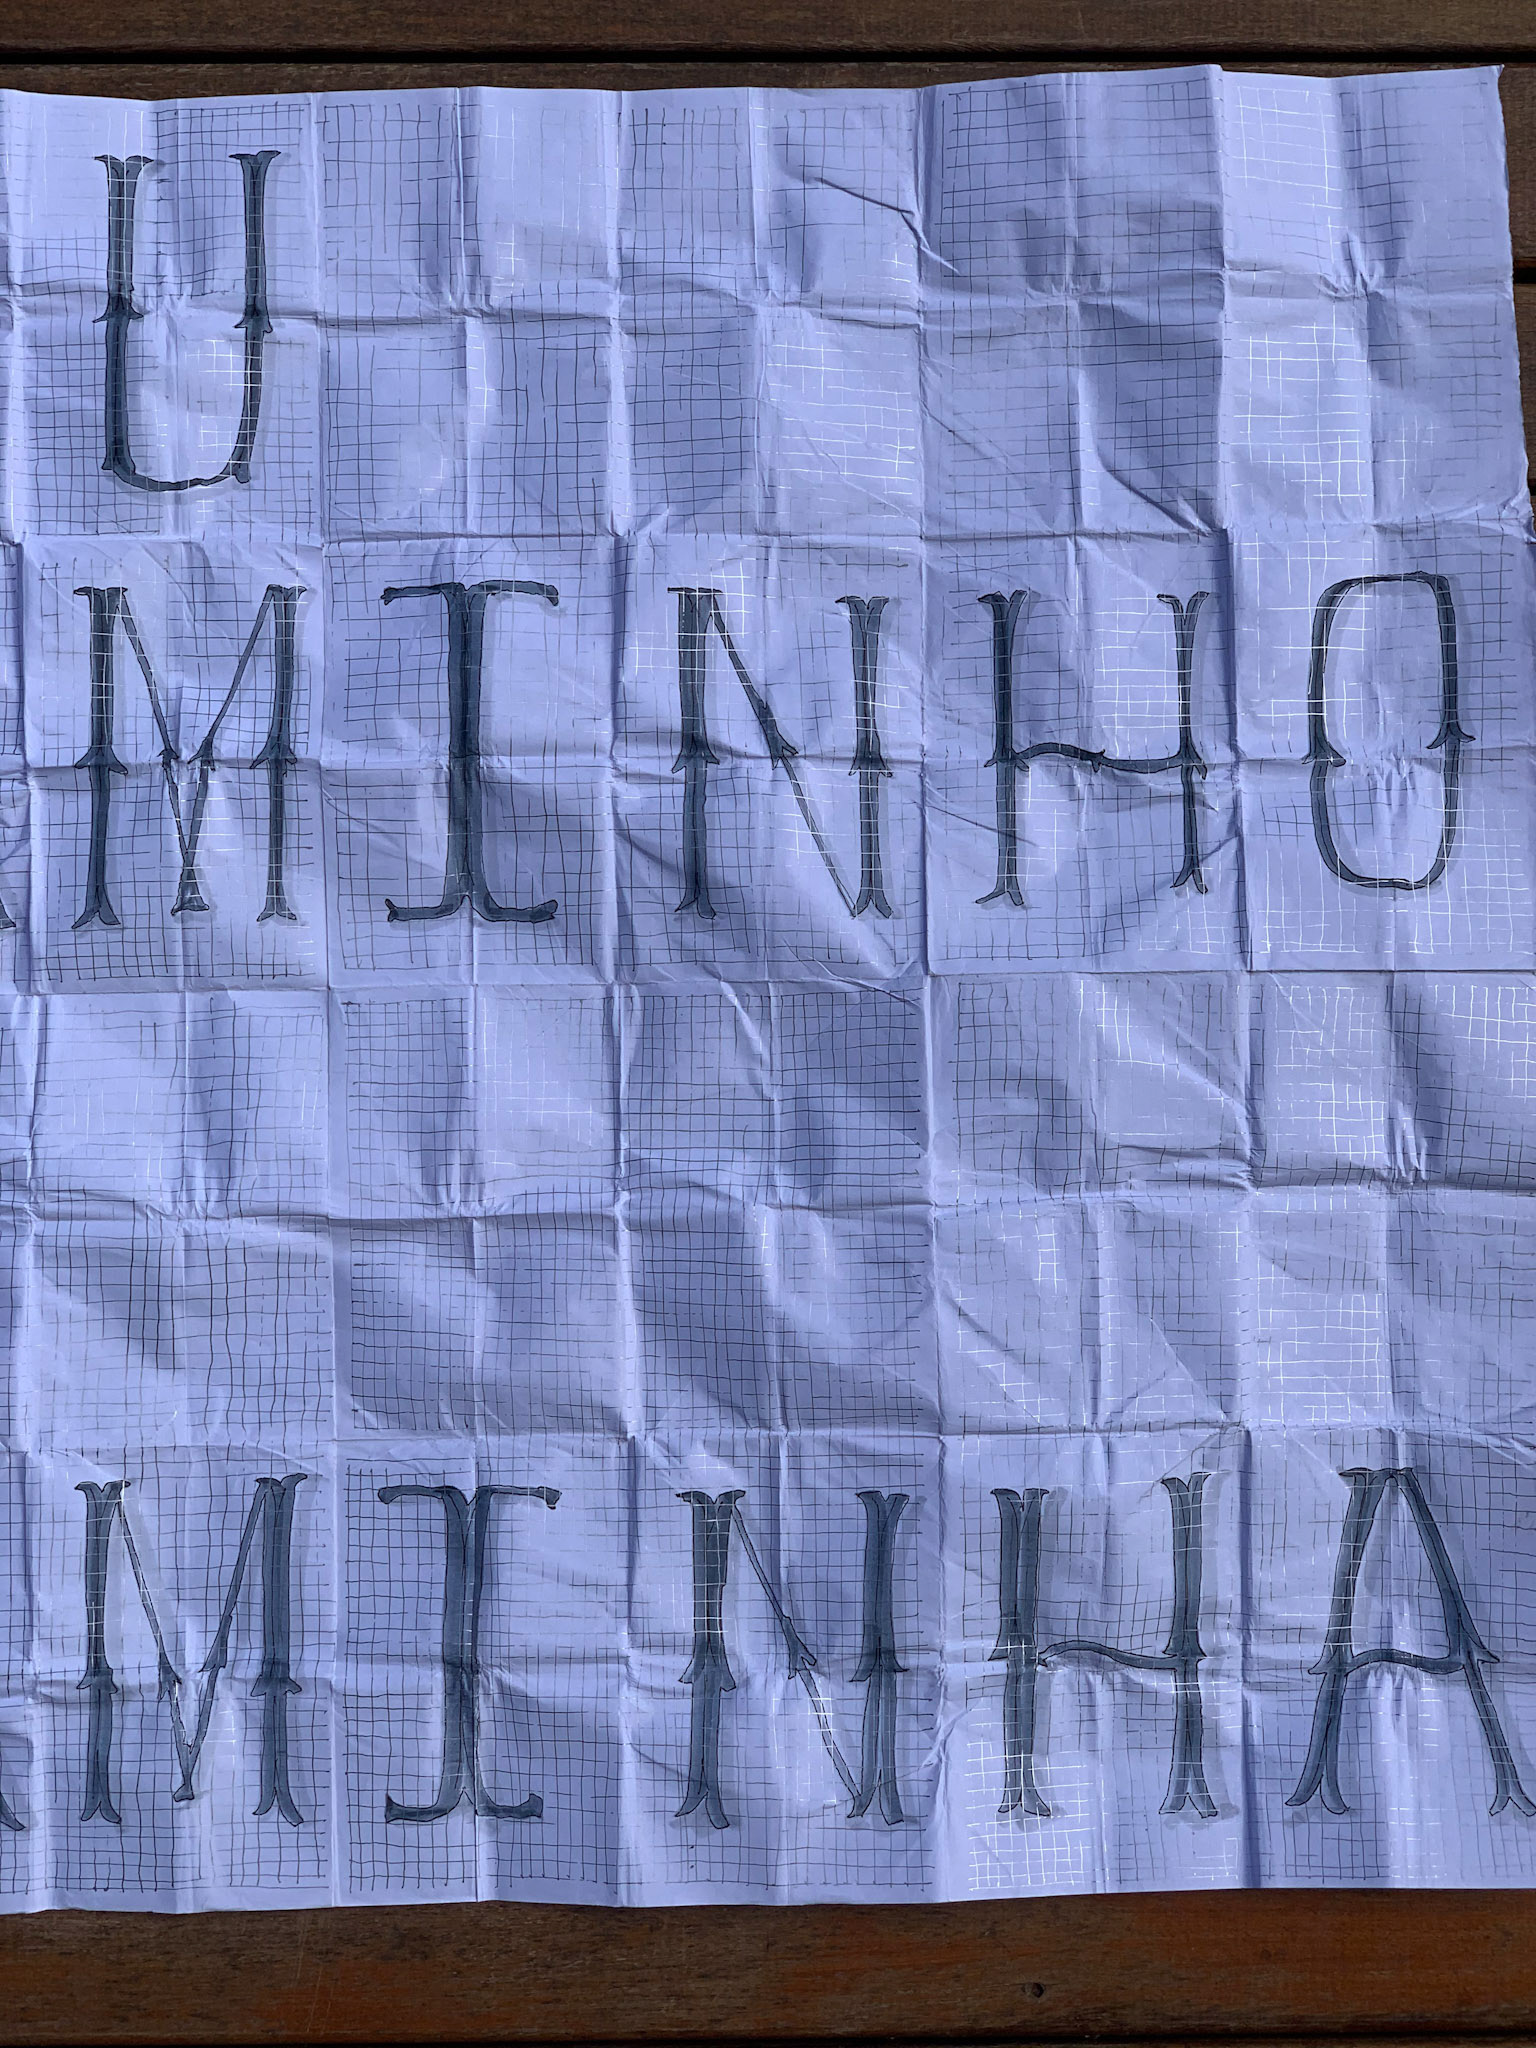 U
MINHO
MINHA